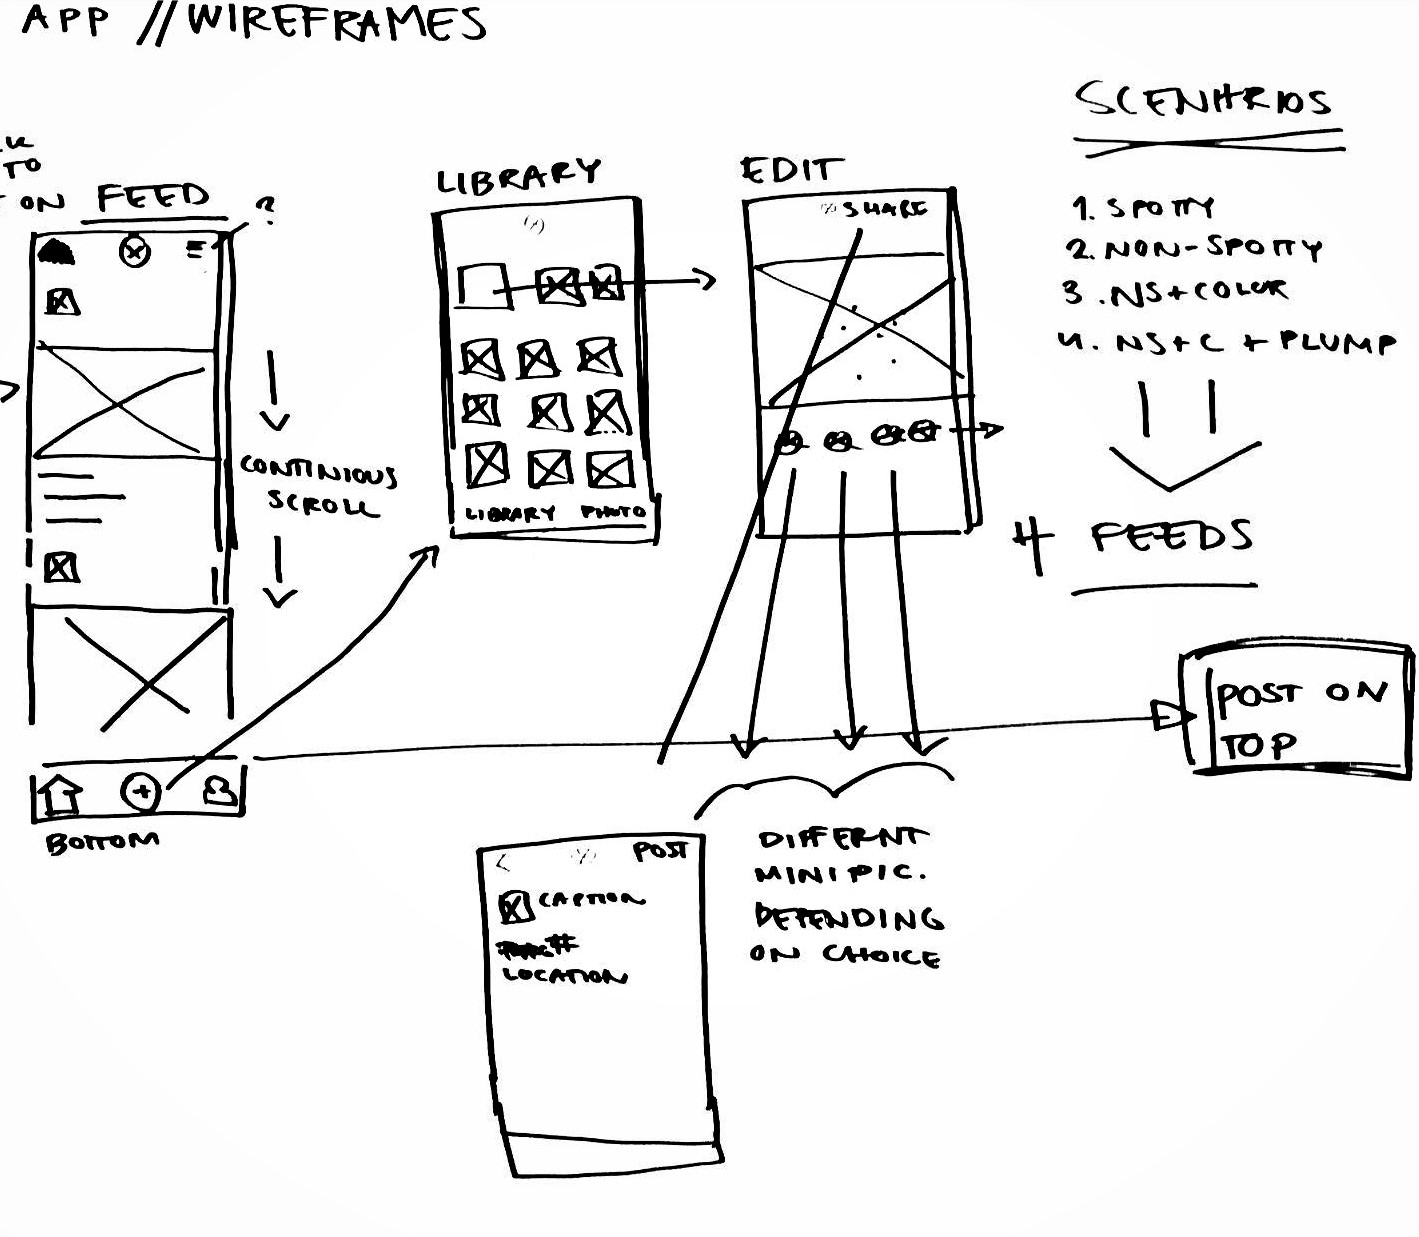 APP // WIREFRAMES
TO
ON FEED
?
CONTINIOUS
SCROLL
BOTTOM
LIBRARY
LIBRARY PHOTO
EDIT
SHARE
SCENARIOS
1. SPOTTY
2. NON-SPOTTY
3. NS+COLOR
4. NS+C + PLUMP
4 FEEDS
POST ON
TOP
POST
CAPTION
#
LOCATION
DIFFERNT
MINI PIC.
DEPENDING
ON CHOICE